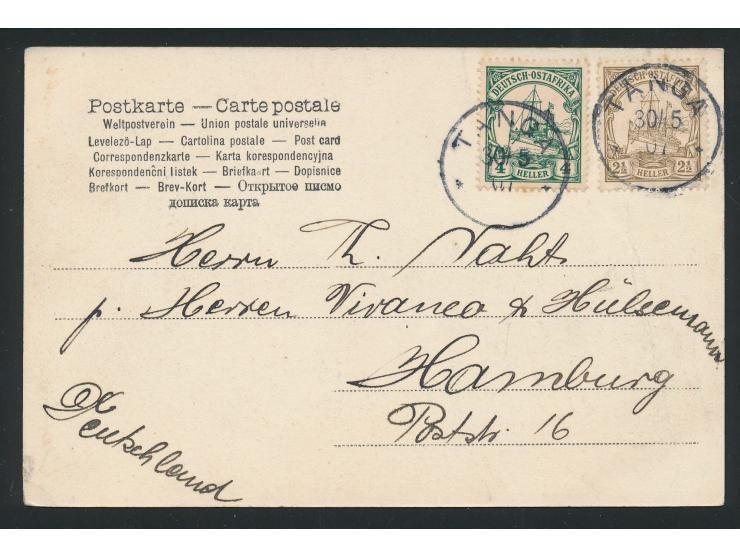 Postkarte — Carte postale
Weltpostverein — Union postale universelle
Levelező-Lap — Cartolina postale — Post card
Correspondenzkarte — Karta korespondencyjna
Korespondenční listek — Briefkaart — Dopisnice
Brefkort — Brev-Kort — Открытое письмо
дописка карта
DEUTSCH-OSTAFRIKA
4 HELLER 4
TANGA
30/5
07
DEUTSCH-OSTAFRIKA
2½ HELLER 2½
TANGA
30/5
07
Herrn Th. Vahts
p. Herren Viranco & Hülsemann
Hamburg
Poststr. 16
Deutschland